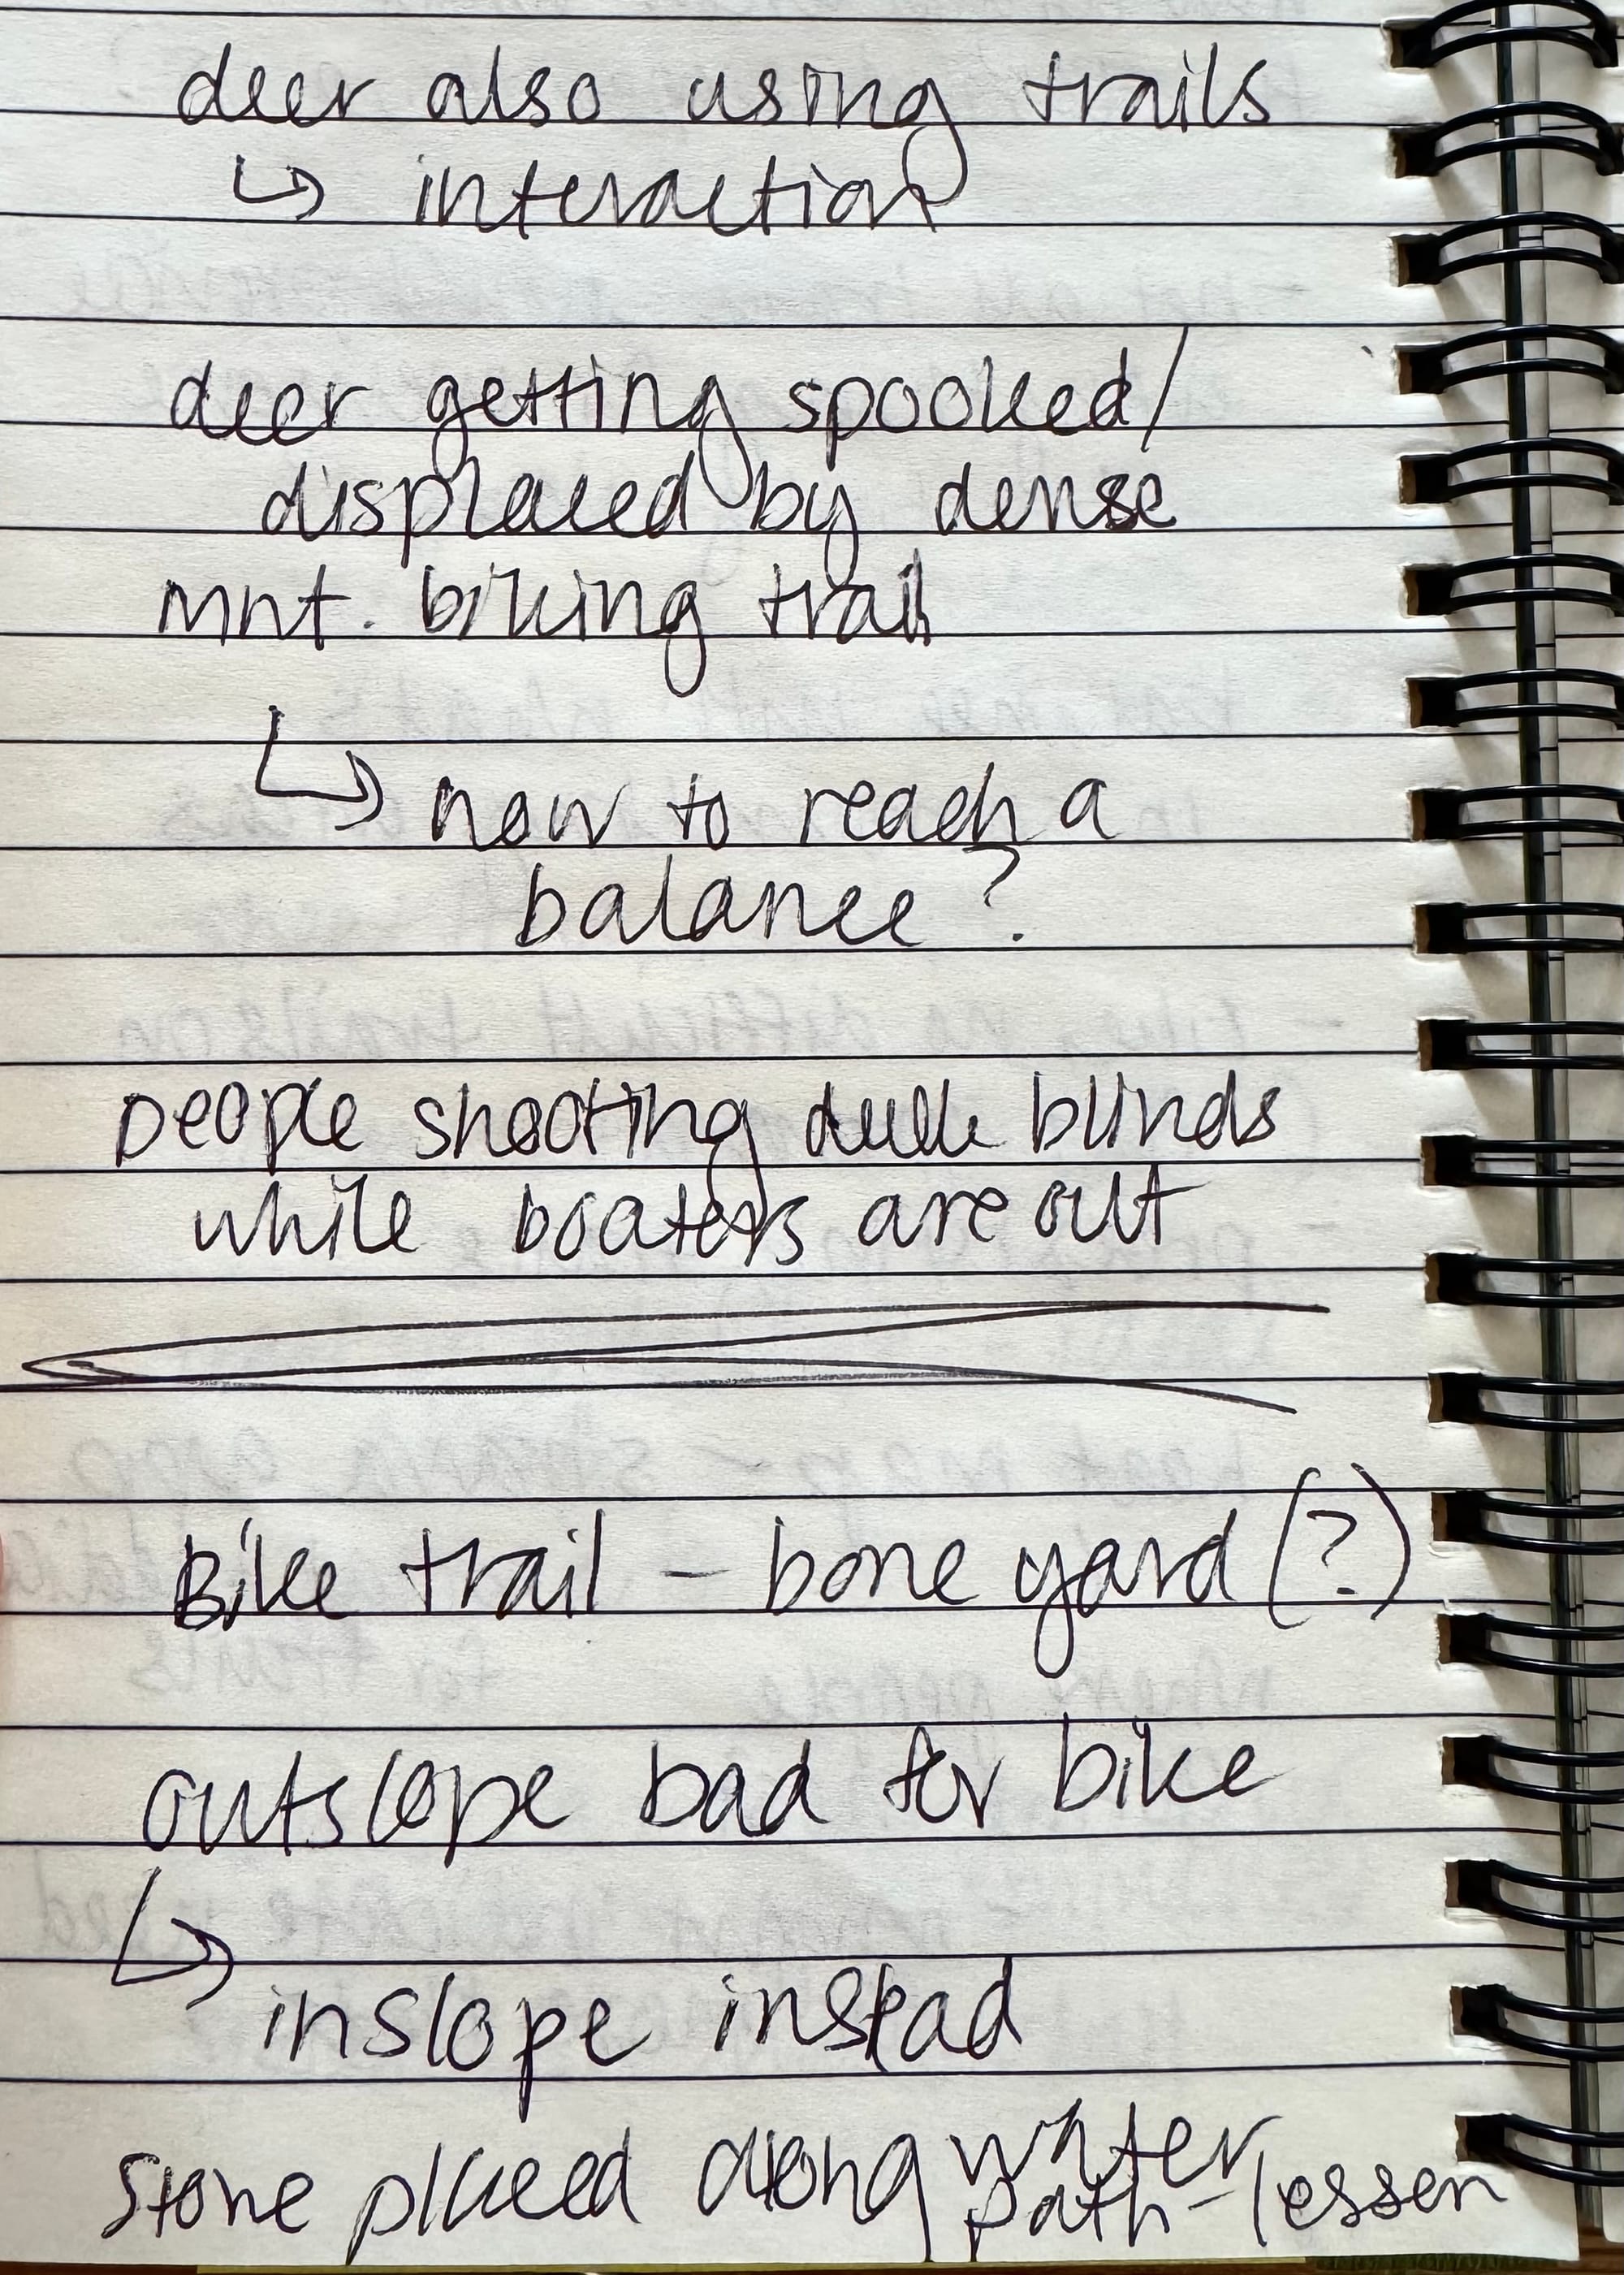 deer also using trails
↳ interaction
deer getting spooked/
displaced by dense
mnt. biking trail
↳ how to reach a
balance?
people shooting duck blinds
while boaters are out
Bike trail - bone yard (?)
outslope bad for bike
↳ inslope instead
stone placed along water
path - lessen